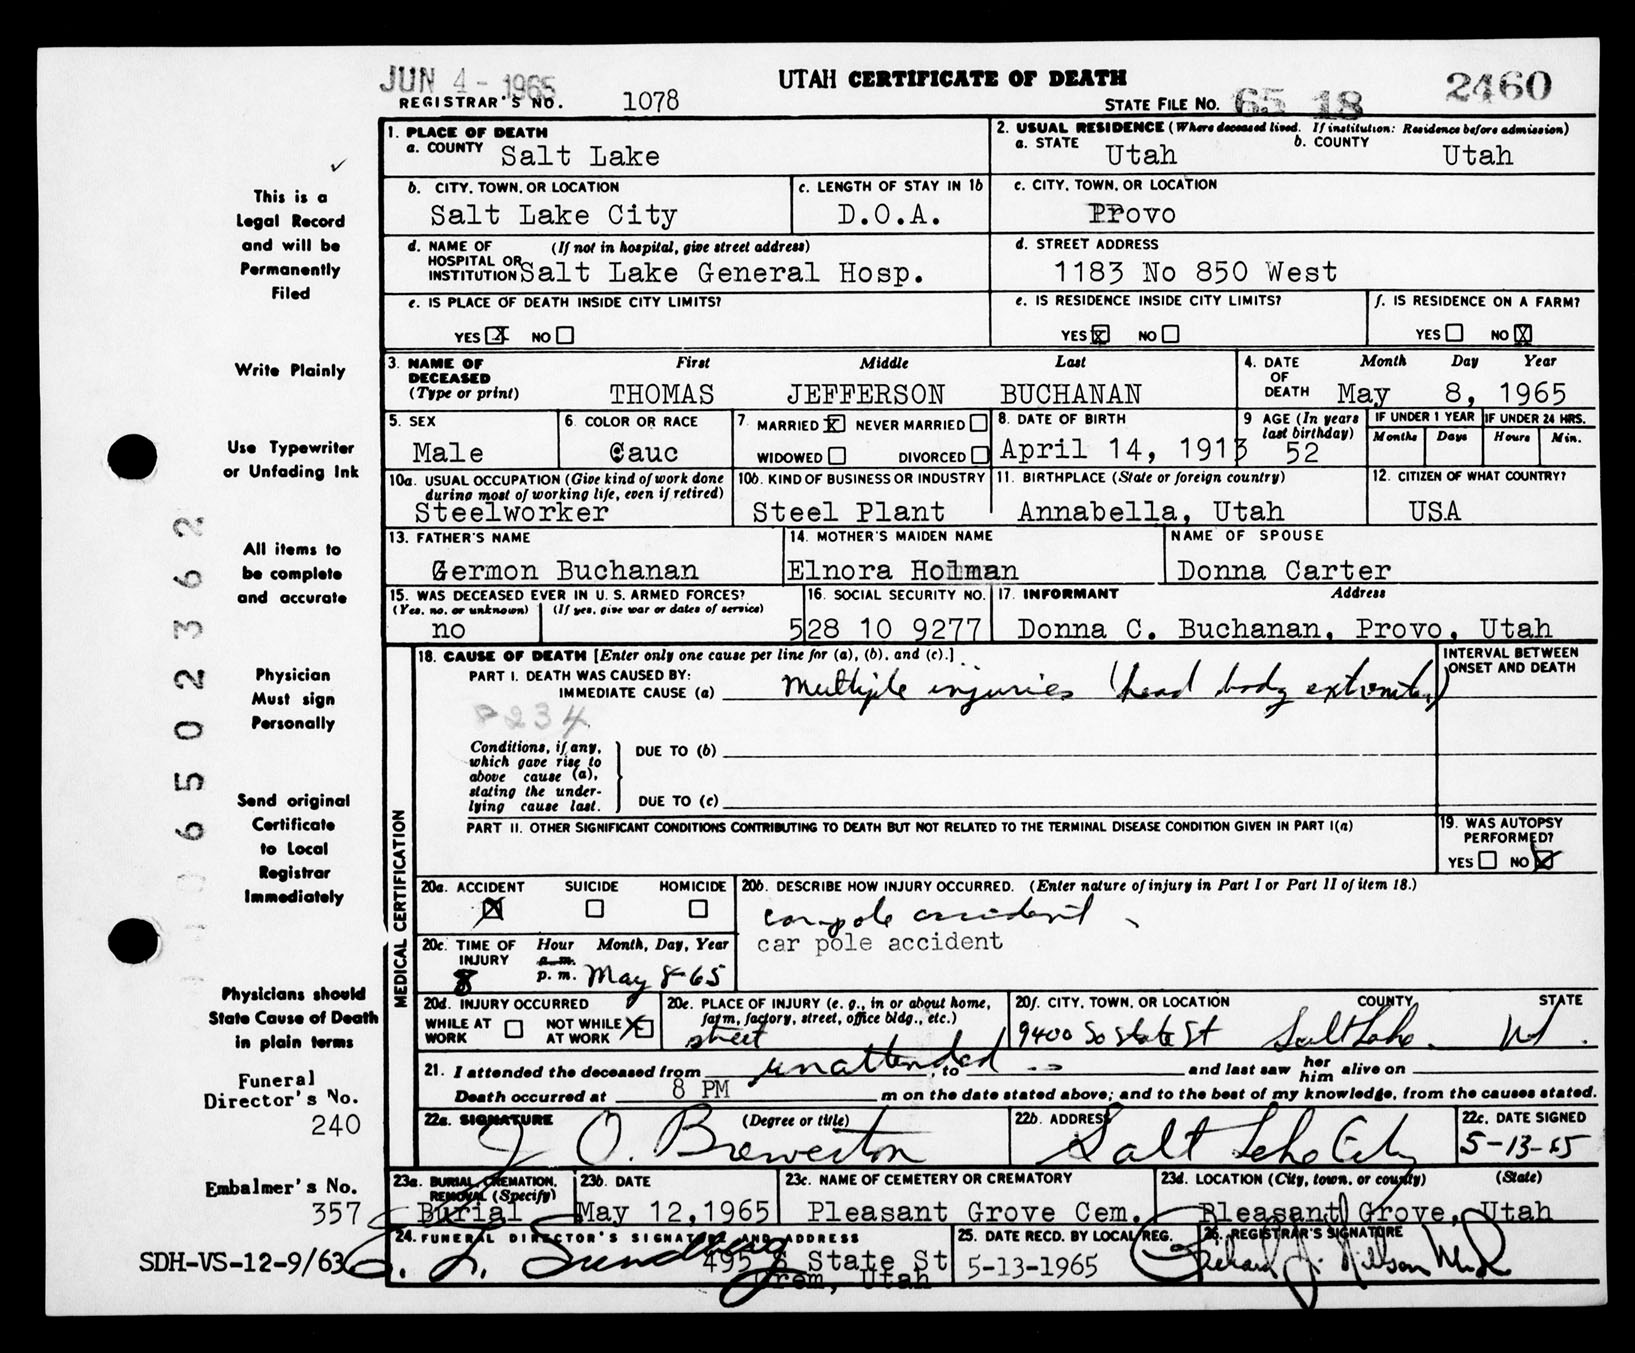 JUN 4 - 1965
UTAH CERTIFICATE OF DEATH
2460
REGISTRAR'S NO. 1078
STATE FILE NO. 65 18
1. PLACE OF DEATH
a. COUNTY Salt Lake
2. USUAL RESIDENCE (Where deceased lived. If institution: Residence before admission)
a. STATE Utah b. COUNTY Utah
b. CITY, TOWN, OR LOCATION
Salt Lake City
c. LENGTH OF STAY IN 1b
D.O.A.
c. CITY, TOWN, OR LOCATION
Provo
d. NAME OF HOSPITAL OR INSTITUTION (If not in hospital, give street address)
Salt Lake General Hosp.
d. STREET ADDRESS
1183 No 850 West
e. IS PLACE OF DEATH INSIDE CITY LIMITS?
YES X NO
e. IS RESIDENCE INSIDE CITY LIMITS?
YES X NO
f. IS RESIDENCE ON A FARM?
YES NO X
3. NAME OF DECEASED (Type or print)
First Middle Last
THOMAS JEFFERSON BUCHANAN
4. DATE OF DEATH
Month Day Year
May 8, 1965
5. SEX
Male
6. COLOR OR RACE
Cauc
7. MARRIED X NEVER MARRIED
WIDOWED DIVORCED
8. DATE OF BIRTH
April 14, 1913
9 AGE (In years last birthday)
52
IF UNDER 1 YEAR
Months Days
IF UNDER 24 HRS.
Hours Min.
10a. USUAL OCCUPATION (Give kind of work done during most of working life, even if retired)
Steelworker
10b. KIND OF BUSINESS OR INDUSTRY
Steel Plant
11. BIRTHPLACE (State or foreign country)
Annabella, Utah
12. CITIZEN OF WHAT COUNTRY?
USA
13. FATHER'S NAME
Germon Buchanan
14. MOTHER'S MAIDEN NAME
Elnora Holman
NAME OF SPOUSE
Donna Carter
15. WAS DECEASED EVER IN U. S. ARMED FORCES?
(Yes, no, or unknown) (If yes, give war or dates of service)
no
16. SOCIAL SECURITY NO.
528 10 9277
17. INFORMANT Address
Donna C. Buchanan, Provo, Utah
MEDICAL CERTIFICATION
18. CAUSE OF DEATH [Enter only one cause per line for (a), (b), and (c).]
INTERVAL BETWEEN ONSET AND DEATH
PART I. DEATH WAS CAUSED BY:
IMMEDIATE CAUSE (a) Multiple injuries (head body extremities)
234
Conditions, if any, which gave rise to above cause (a), stating the underlying cause last.
DUE TO (b)
DUE TO (c)
PART II. OTHER SIGNIFICANT CONDITIONS CONTRIBUTING TO DEATH BUT NOT RELATED TO THE TERMINAL DISEASE CONDITION GIVEN IN PART I(a)
19. WAS AUTOPSY PERFORMED?
YES NO X
20a. ACCIDENT SUICIDE HOMICIDE
X
20b. DESCRIBE HOW INJURY OCCURRED. (Enter nature of injury in Part I or Part II of item 18.)
car pole accident
car pole accident
20c. TIME OF INJURY
Hour Month, Day, Year
a. m.
8 p. m. May 8-65
20d. INJURY OCCURRED
WHILE AT WORK NOT WHILE AT WORK X
20e. PLACE OF INJURY (e. g., in or about home, farm, factory, street, office bldg., etc.)
street
20f. CITY, TOWN, OR LOCATION COUNTY STATE
9400 So State St Salt Lake. Ut.
21. I attended the deceased from unattended, to -- and last saw her him alive on
Death occurred at 8 PM m on the date stated above; and to the best of my knowledge, from the causes stated.
22a. SIGNATURE (Degree or title)
J O. Brewerton
22b. ADDRESS
Salt Lake City
22c. DATE SIGNED
5-13-65
23a. BURIAL, CREMATION, REMOVAL (Specify)
Burial
23b. DATE
May 12,1965
23c. NAME OF CEMETERY OR CREMATORY
Pleasant Grove Cem.
23d. LOCATION (City, town, or county) (State)
Pleasant Grove, Utah
24. FUNERAL DIRECTOR'S SIGNATURE AND ADDRESS
E. L. Sundberg 495 S State St
Orem, Utah
25. DATE RECD. BY LOCAL REG.
5-13-1965
26. REGISTRAR'S SIGNATURE
Richard J. Nilson M.D.
This is a
Legal Record
and will be
Permanently
Filed
Write Plainly
Use Typewriter
or Unfading Ink
All items to
be complete
and accurate
Physician
Must sign
Personally
Send original
Certificate
to Local
Registrar
Immediately
Physicians should
State Cause of Death
in plain terms
Funeral
Director's No.
240
Embalmer's No.
357
SDH-VS-12-9/63
06502362